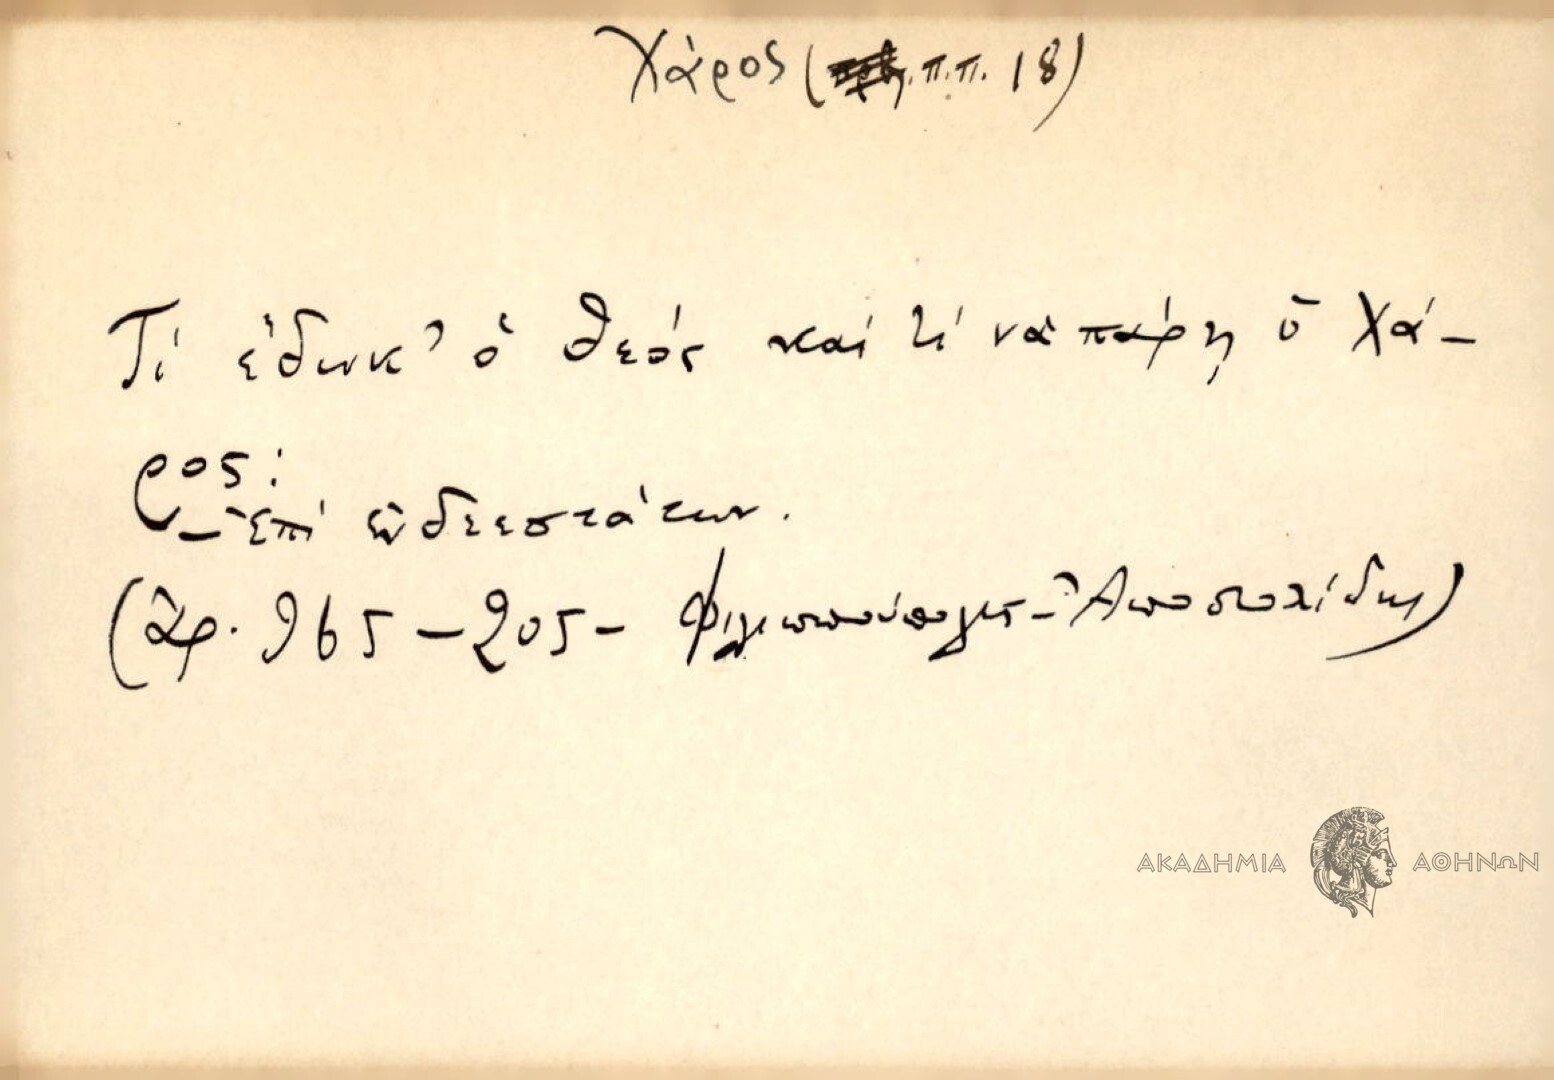 Χάρος ( π.π. 18)
Τί ἔδωκ' ὁ θεός καί τί νὰ πάρῃ ὁ Χά-
ρος;
- Ἐπί ἐνδεεστάτων.
(ἀρ. 965 - 205 - Φιλιππούπολις - Ἀποστολίδης)
ΑΚΑΔΗΜΙΑ ΑΘΗΝΩΝ